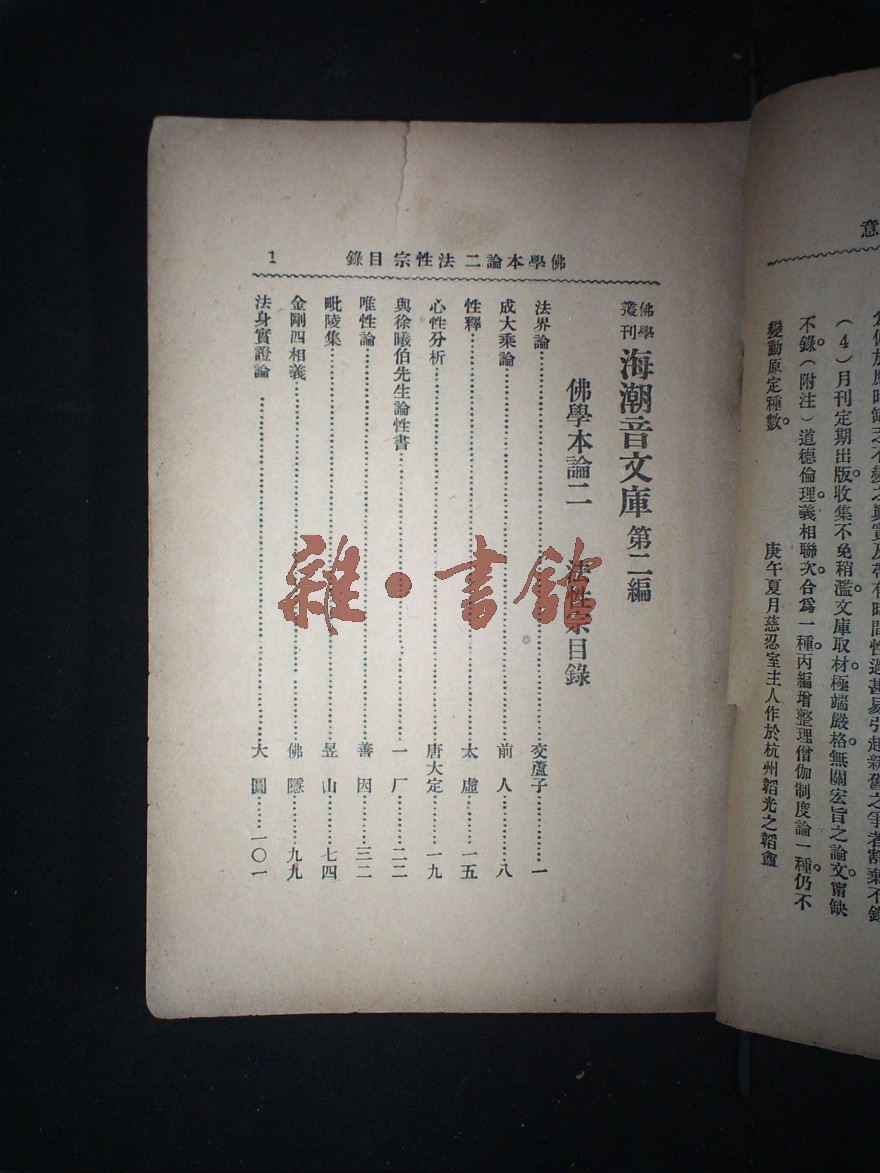 意
為偏於應時缺乏不變之真實及帶有時間性過甚易引起新舊之爭者割棄不錄
（4）月刊定期出版收集不免稍濫文庫取材極端嚴格無關宏旨之論文甯缺
不錄（附注）道德倫理義相聯次合爲一種丙編增整理僧伽制度論一種仍不
變動原定種數。
庚午夏月慈忍室主人作於杭州韜光之韜盦
佛學本論二 法性宗目錄 1
佛學叢刊 海潮音文庫 第二編
佛學本論二 法性宗目錄
法界論……交蘆子……一
成大乘論……前人……八
性釋……太虛……一五
心性分析……唐大定……一九
與徐曦伯先生論性書……一厂……二二
唯性論……善因……三二
毗陵集……昱山……七四
金剛四相義……佛隱……九九
法身實證論……大圓……一〇一
雜·書館